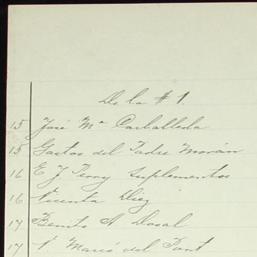 De la # 1.
15 José Mª Carballeda
15 Gastos del Padre Morán
16 E J Perry Suplementos
16 Vicenta Diez
17 Benito A Dosal
17 V. María del Font